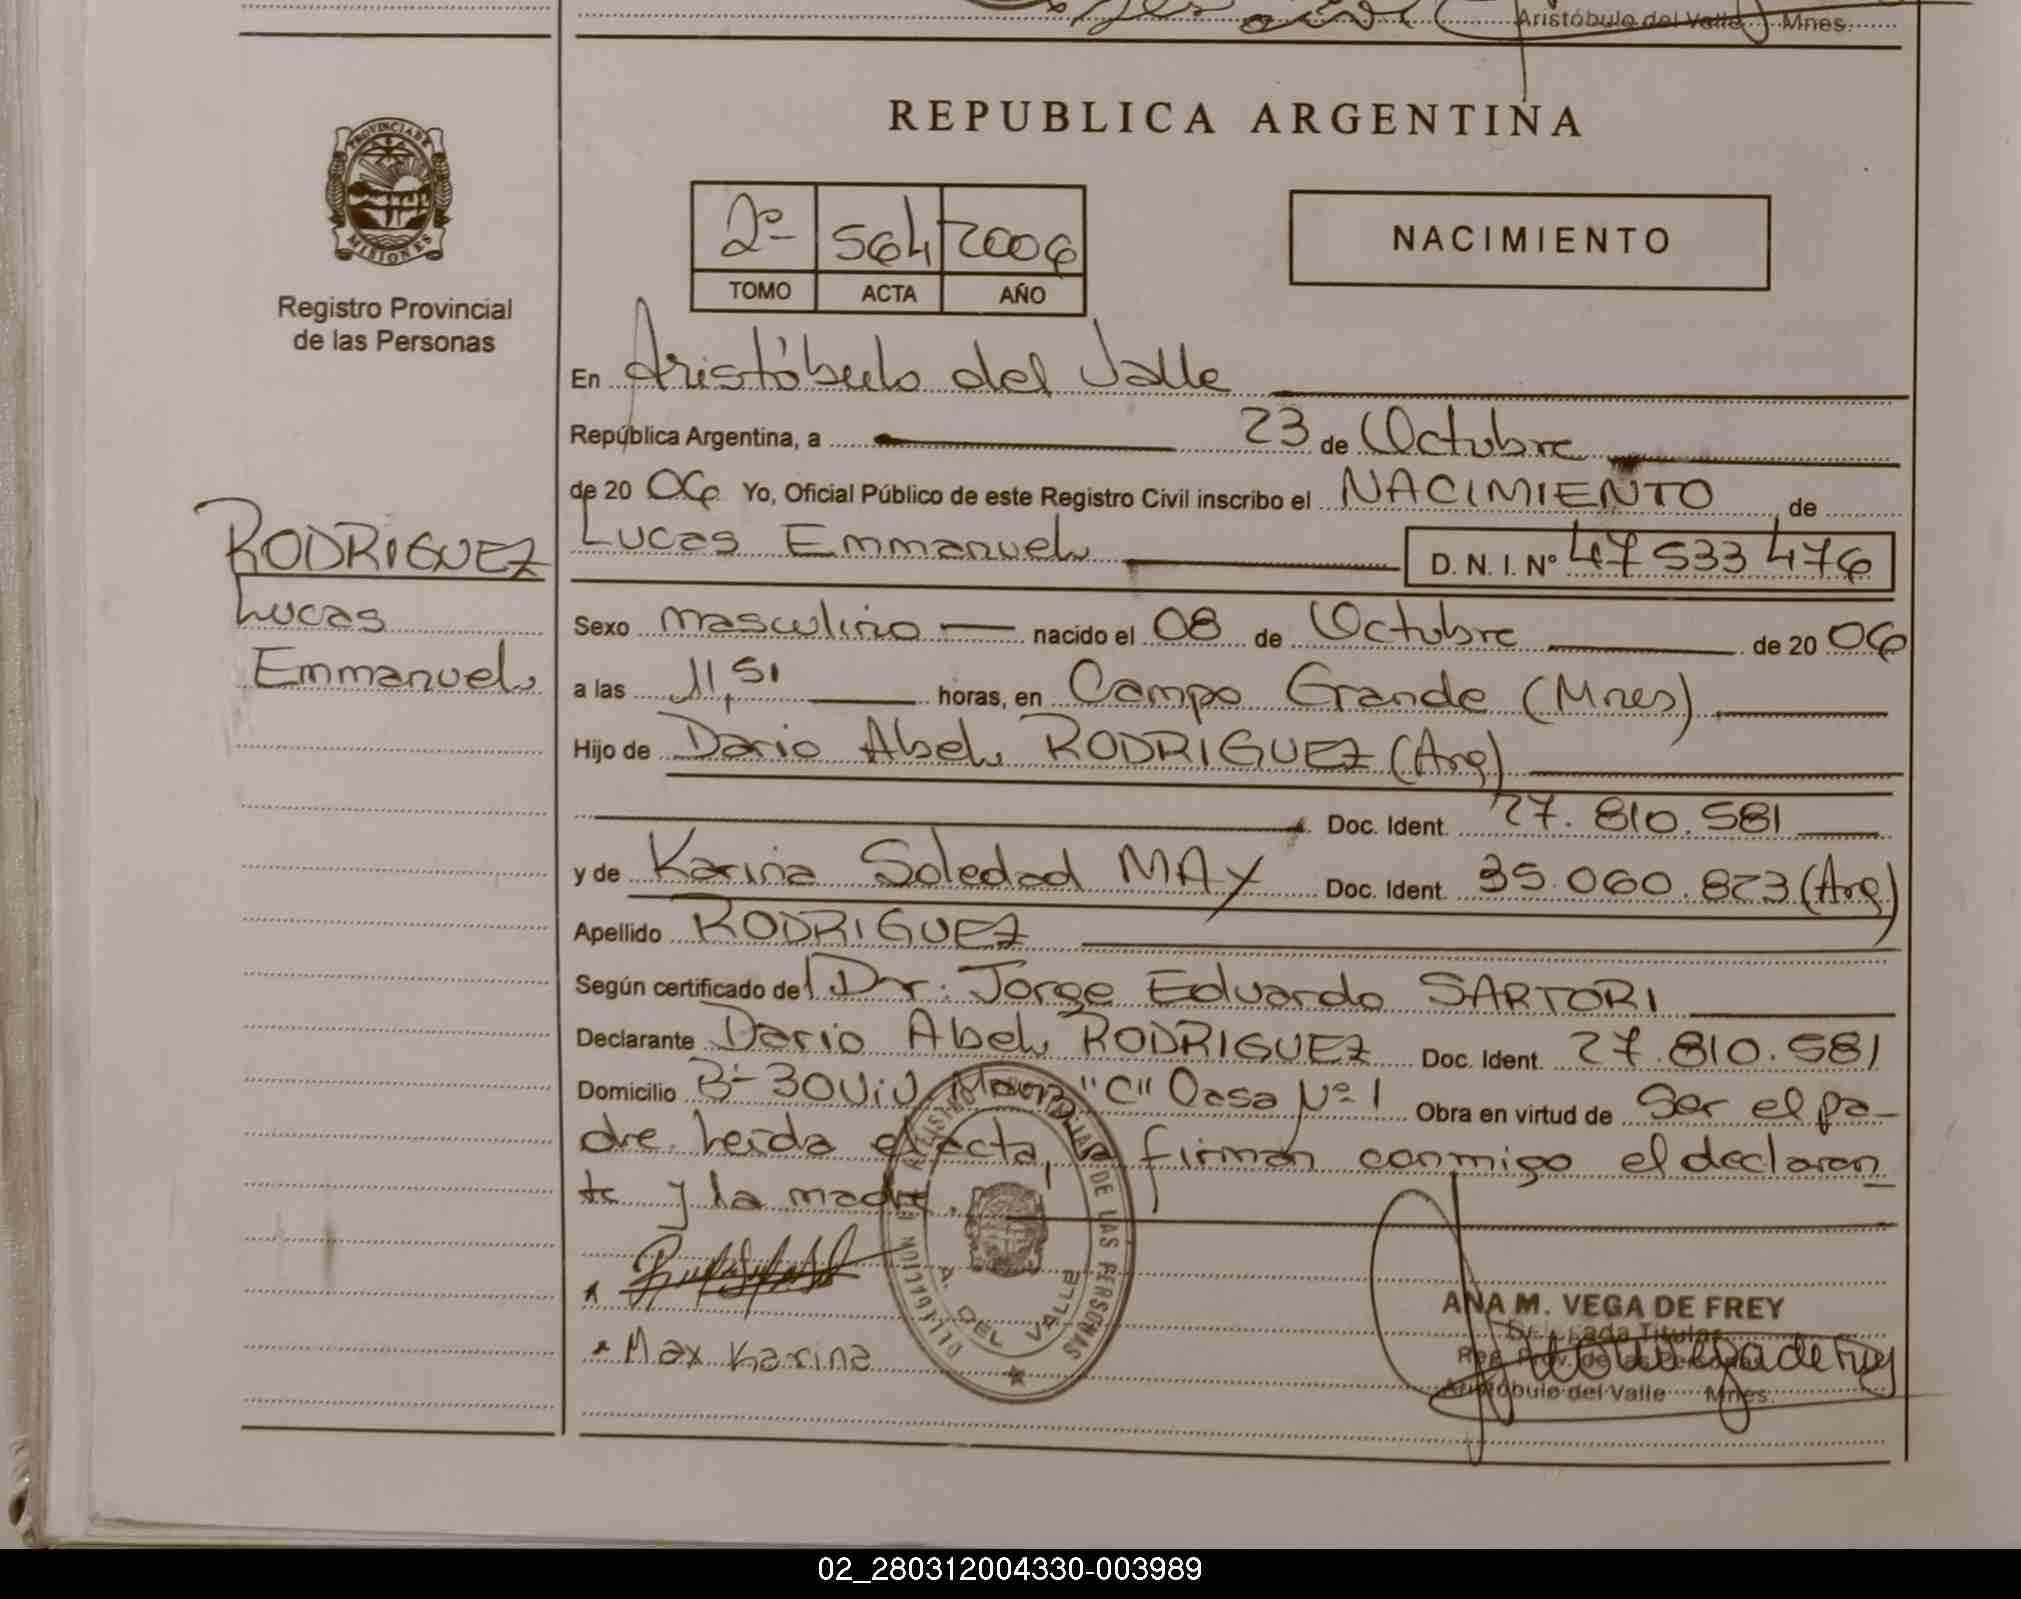 Aristóbulo del Valle Mnes.
REPUBLICA ARGENTINA
PROVINCIA DE
MISIONES
Registro Provincial
de las Personas
2º 564 2006
TOMO ACTA AÑO
NACIMIENTO
En Aristóbulo del Valle
República Argentina, a 23 de Octubre
de 20 06 Yo, Oficial Público de este Registro Civil inscribo el NACIMIENTO de
RODRIGUEZ
Lucas
Emmanuel
Lucas Emmanuel D. N. I. Nº 47 533 476
Sexo masculino nacido el 08 de Octubre de 20 06
a las 11,51 horas, en Campo Grande (Mnes)
Hijo de Dario Abel RODRIGUEZ (Arg)
Doc. Ident. 27.810.581
y de Karina Soledad MAY Doc. Ident. 35.060.823 (Arg)
Apellido RODRIGUEZ
Según certificado del Dr. Jorge Eduardo SARTORI
Declarante Dario Abel RODRIGUEZ Doc. Ident. 27.810.581
Domicilio Bº 30 Viv "C" Casa Nº 1 Obra en virtud de Ser el pa-
dre. Leida el acta, firman conmigo el declaran
te y la madre.
REGISTRO PROVINCIAL DE LAS PERSONAS
DELEGACION
A. DEL VALLE
May Karina
ANA M. VEGA DE FREY
Delegada Titular
Reg. Prov. de las Personas
Aristóbulo del Valle Mnes.
02_280312004330-003989